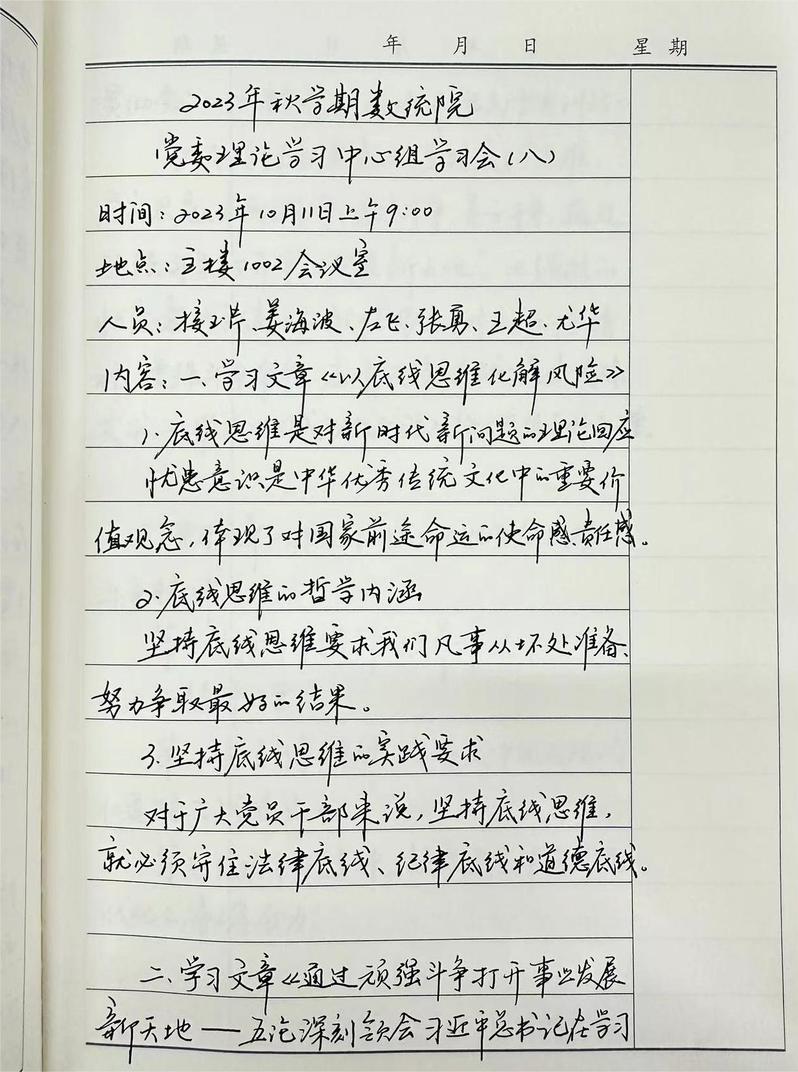 年 月 日 星期
2023年秋学期数统院
党委理论学习中心组学习会(八)
时间:2023年10月11日上午9:00
地点:主楼1002会议室
人员:接玉芹、姜海波、左飞、张勇、王超、尤华
内容:一、学习文章《以底线思维化解风险》
1、底线思维是对新时代新问题的理论回应
忧患意识是中华优秀传统文化中的重要价
值观念,体现了对国家前途命运的使命感、责任感。
2、底线思维的哲学内涵
坚持底线思维要求我们凡事从坏处准备、
努力争取最好的结果。
3、坚持底线思维的实践要求
对于广大党员干部来说,坚持底线思维,
就必须守住法律底线、纪律底线和道德底线。
二、学习文章《通过顽强斗争打开事业发展
新天地——五论深刻领会习近平总书记在学习